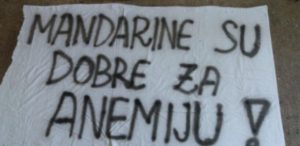 MANDARINE SU
DOBRE ZA
ANEMIJU!